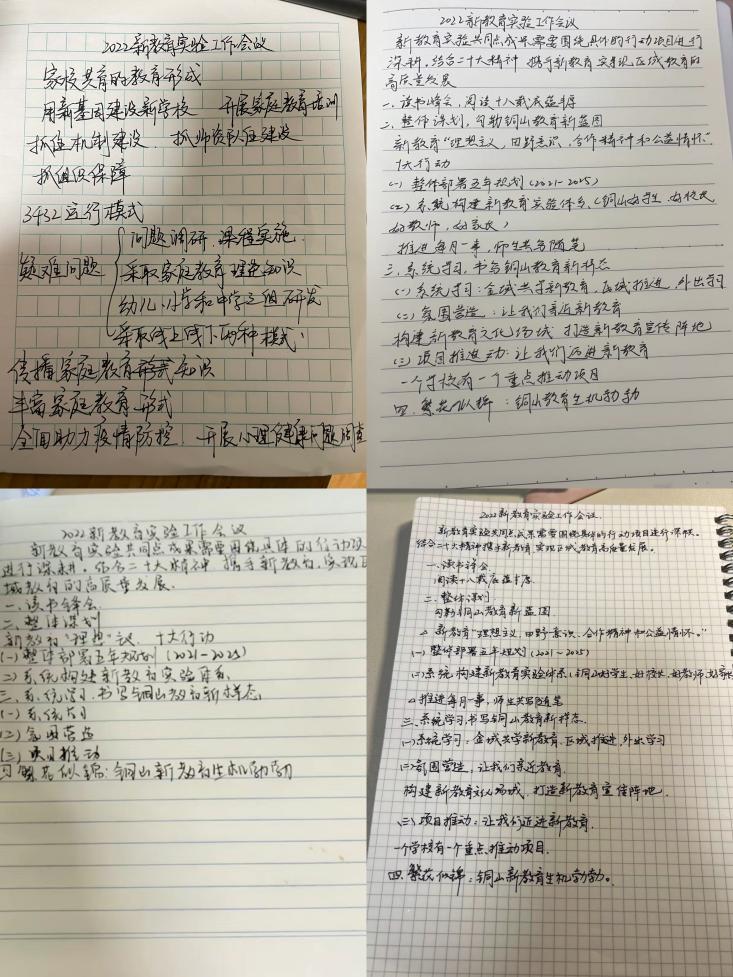 2022新教育实验工作会议
家校共育的教育形式
用新基因建设新学校 开展家庭教育培训
抓住机制建设、抓师资队伍建设
抓组织保障
3432运行模式
疑难问题
问题调研、课程实施
采取家庭教育理论知识
幼儿、小学和中学三组研发
采取线上线下两种模式
传播家庭教育知识
丰富家庭教育形式
全面助力疫情防控、开展心理健康问题
2022新教育实验工作会议
新教育实验共同点成果需要围绕具体的行动项目进行
深耕。结合二十大精神 携手新教育 实现区域教育的
高质量发展
一、读书峰会,阅读十八载底蕴丰厚
二、整体谋划,勾勒铜山教育新蓝图
新教育“理想主义,田野意识,合作精神和公益情怀”
十大行动
(一)整体部署五年规划(2021-2025)
(二)系统构建新教育实验体系(铜山好学生、好校长
好教师,好家长)
推进每月一事,师生共写随笔
三、系统学习,书写铜山教育新样态
(一)系统学习:全域共学新教育、区域推进,外出学习
(二)氛围营造:让我们亲近新教育
构建新教育文化场域 打造新教育宣传阵地
(三)项目推进动:让我们迈进新教育
一个学校有一个重点推动项目
四、繁花似锦:铜山教育生机勃勃
2022新教育实验工作会议
新教育实验共同点成果需要围绕具体的行动项
进行深耕。结合二十大精神 携手新教育,实现区
域教育的高质量发展.
一、读书峰会
二、整体谋划
新教育“理想”主义、十大行动
(一)整体部署五年规划(2021-2025)
(二)系统构建新教育实验体系
三、系统学习、书写铜山教育新样态
(一)系统学习
(二)氛围营造
(三)项目推动
四繁花似锦:铜山新教育生机勃勃
2022新教育实验工作会议.
新教育实验共同点,成果需要围绕具体的行动项目进行深耕。
结合二十大精神携手新教育,实现区域教育高质量发展。
一、读书峰会
阅读十八载底蕴丰厚.
二、整体谋划
勾勒铜山教育新蓝图
新教育“理想主义,田野意识、合作精神和公益情怀。”
(一)整体部署五年规划(2021~2025)
(二)系统构建新教育实验体系(铜山好学生、好校长、好教师、好家长
推进每月一事,师生共写随笔
三、系统学习,书写铜山教育新样态.
(一)系统学习:全域共学新教育、区域推进、外出学习
(二)氛围营造,让我们亲近教育.
构建新教育文化场域,打造新教育宣传阵地.
(三)项目推动:让我们迈进新教育.
一个学校有一个重点推动项目.
四、繁花似锦:铜山新教育生机勃勃。